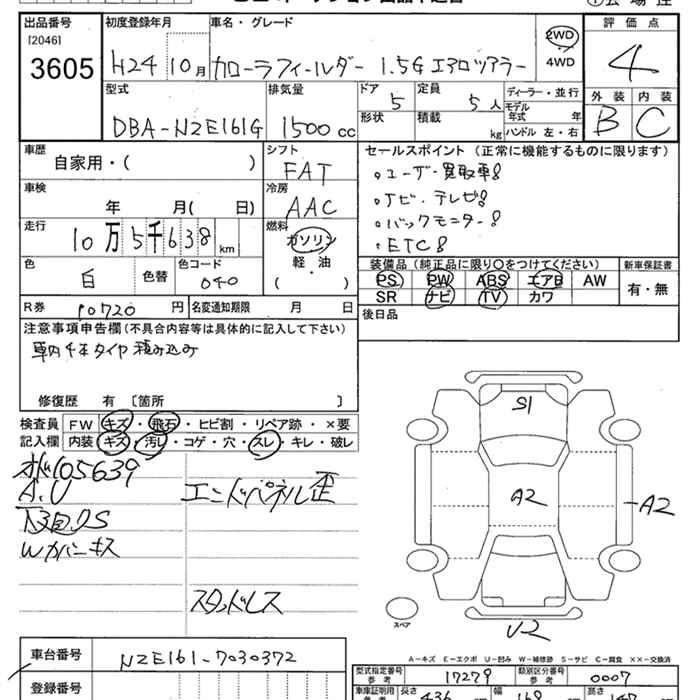 出品番号
[2046]
3605
初度登録年月
H24 10月
車名・グレード
カローラフィールダー 1.5G エアロツアラー
2WD
4WD
評価点
4
外装 内装
B C
型式
DBA-NZE161G
排気量
1500cc
ドア
5
定員
5人
形状
積載
kg
ディーラー・並行
モデル年式 年
ハンドル 左・右
車歴
自家用・( )
シフト
FAT
車検
年 月( 日)
冷房
AAC
走行
10万5千638km
燃料
ガソリン
軽・油
( ・ )
色
白
色替
色コード
040
R券
10720円
名変通知期限 月 日
セールスポイント (正常に機能するものに限ります)
・ユーザー買取車!
・ナビ・テレビ!
・バックモニター!
・ETC!
装備品 (純正品に限り○をつけてください)
PS PW ABS エアB AW
SR ナビ TV カワ
新車保証書
有・無
後日品
注意事項申告欄(不具合内容等は具体的に記入して下さい)
車内4本タイヤ積み込み
修復歴 有 [箇所 ]
検査員記入欄
FW キズ・飛石・ヒビ割・リペア跡・×要
内装 キズ・汚レ・コゲ・穴・スレ・キレ・破レ
105639
A.U
Wカバーキス
エンドパネル歪
スタッドレス
S1
A2
A2
U-2
スペア
A-キズ E-エクボ U-凹み W-補修跡 S-サビ C-腐食 ××-交換済
車台番号
NZE161-7030372
登録番号
型式指定番号 参考
17279
類別区分番号 参考
0007
車庫証明用 参考
長さ
436
幅
169
高さ
147